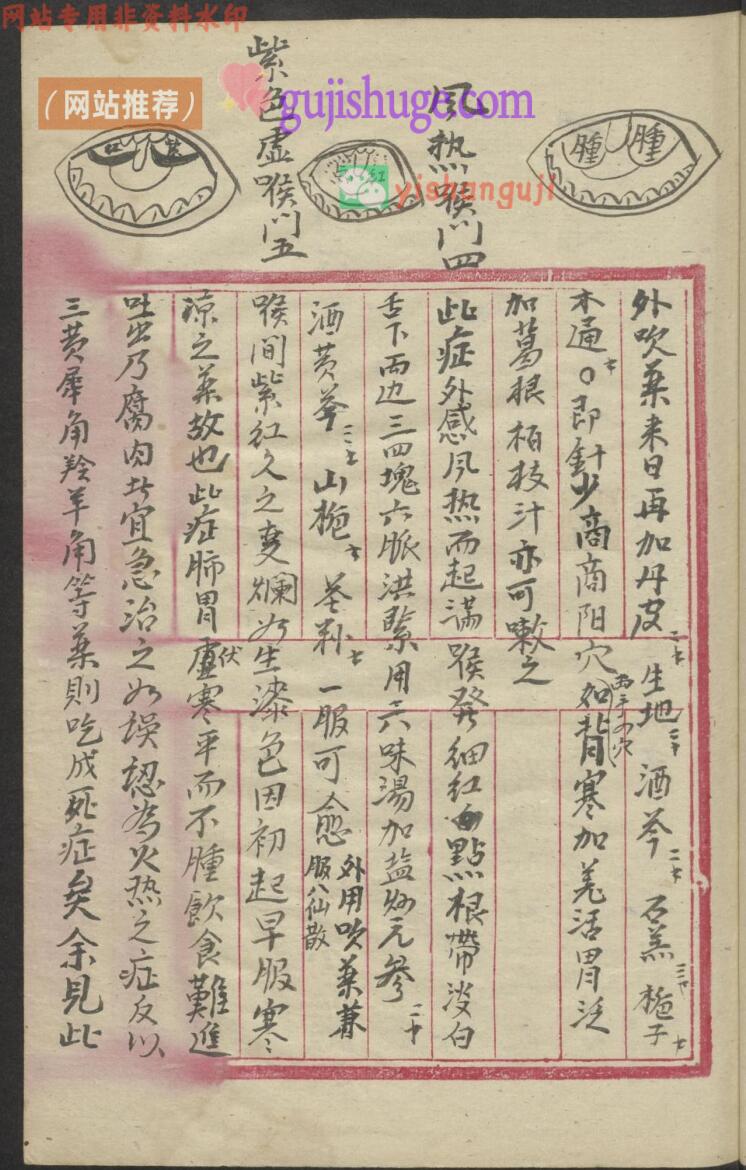 网站专用非资料水印
（网站推荐）
gujishuge.com
yishanguji
風热喉门四
紫色虚喉门五
腫 腫
红
外吹薬来日再加丹皮 生地 酒芩 石羔 栀子
木通 〇即針少商商阳穴 如背寒加羌活胃泛
两手の穴
加葛根柏枝汁亦可嗽之
此症外感风热而起满喉發细红点點根帶淡白
舌下两边三四塊六脈洪緊用六味湯加盐炒元參
酒黄芩 山栀 一服可愈 外用吹薬兼
服八仙散
喉间紫红久之变爛如生漆色因初起早服寒
凉之薬故也此症肺胃虚寒平而不腫飲食難進
伏
吐出乃腐肉甘宜急治之如误認為火热之症反以
三黄犀角羚羊角等薬則吃成死症矣余見此